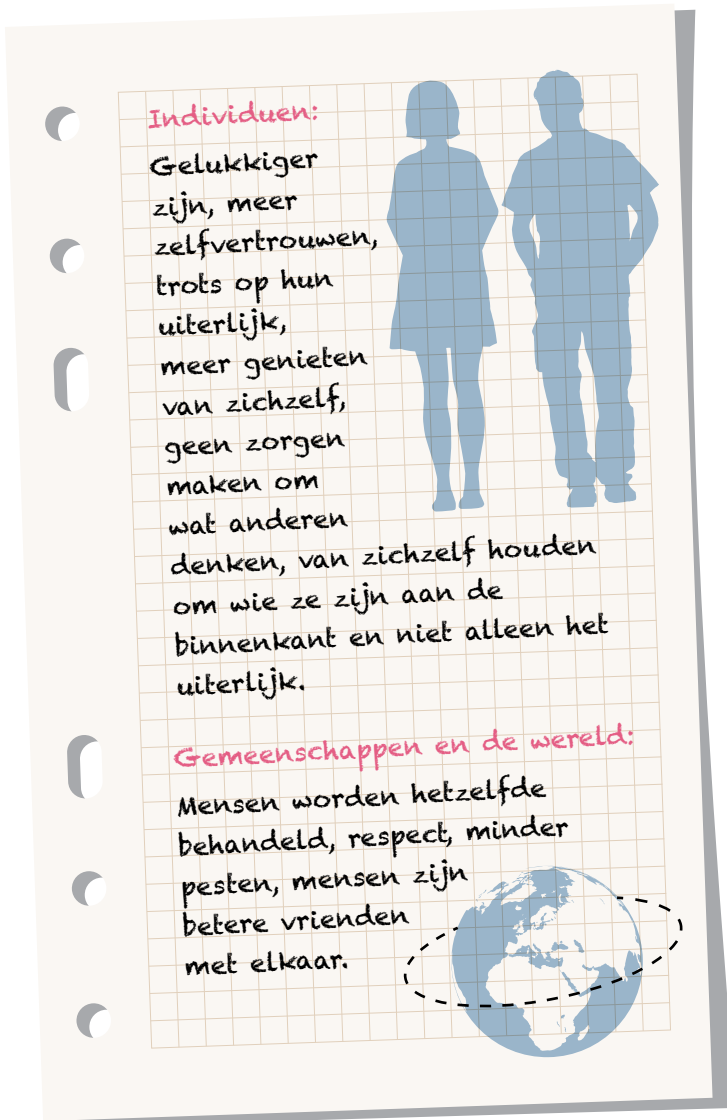 Individuen:
Gelukkiger
zijn, meer
zelfvertrouwen,
trots op hun
uiterlijk,
meer genieten
van zichzelf,
geen zorgen
maken om
wat anderen
denken, van zichzelf houden
om wie ze zijn aan de
binnenkant en niet alleen het
uiterlijk.
Gemeenschappen en de wereld:
Mensen worden hetzelfde
behandeld, respect, minder
pesten, mensen zijn
betere vrienden
met elkaar.